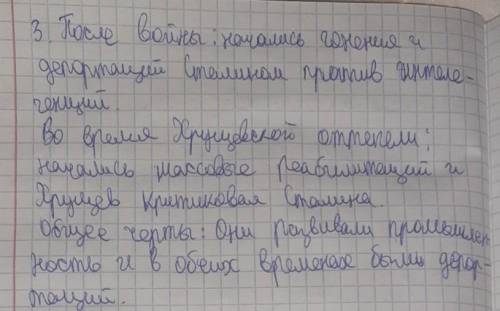 3. После войны: начались гонения и
депортаций Сталином против интеле-
генций.
Во время Хрущевской оттепели:
начались массовые реабилитаций и
Хрущев критиковал Сталина.
Общее черты: Они развивали промышлен
ность и в обеих временах были депор-
таций.